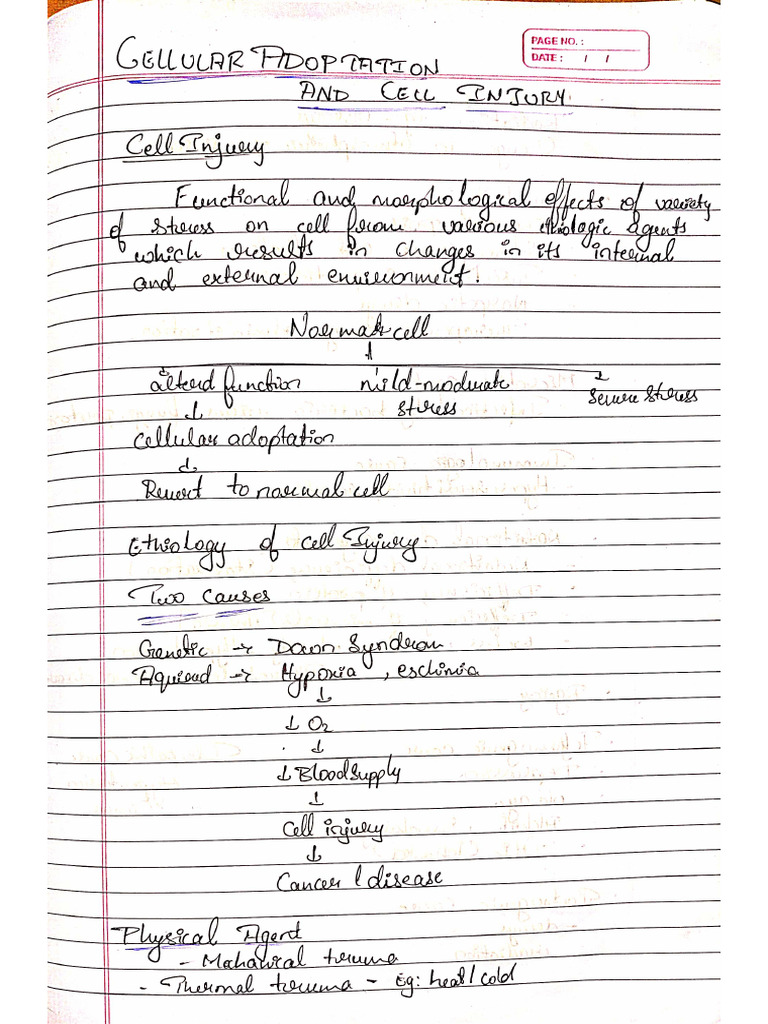 CELLULAR ADOPTATION
PAGE NO. :
DATE : / /
AND CELL INJURY.
Cell Injury
Functional and morphological effects of variety
of stress on cell from various ethiologic agents
which results in changes in its internal
and external environment.
Normal cell
↓
alterd function mild-moderate severe stress
stress
↓
cellular adoptation
↓
Revert to normal cell
Ethiology of cell Injury
Two Causes
Genetic → Down Syndrom
Aquierd → Hypoxia , eschimia
↓
↓ O2
↓
↓ Blood supply
↓
Cell injury
↓
Cancer / disease
Physical Agent
- Mahanical truma
- Thermal truma - Eg: heat / cold